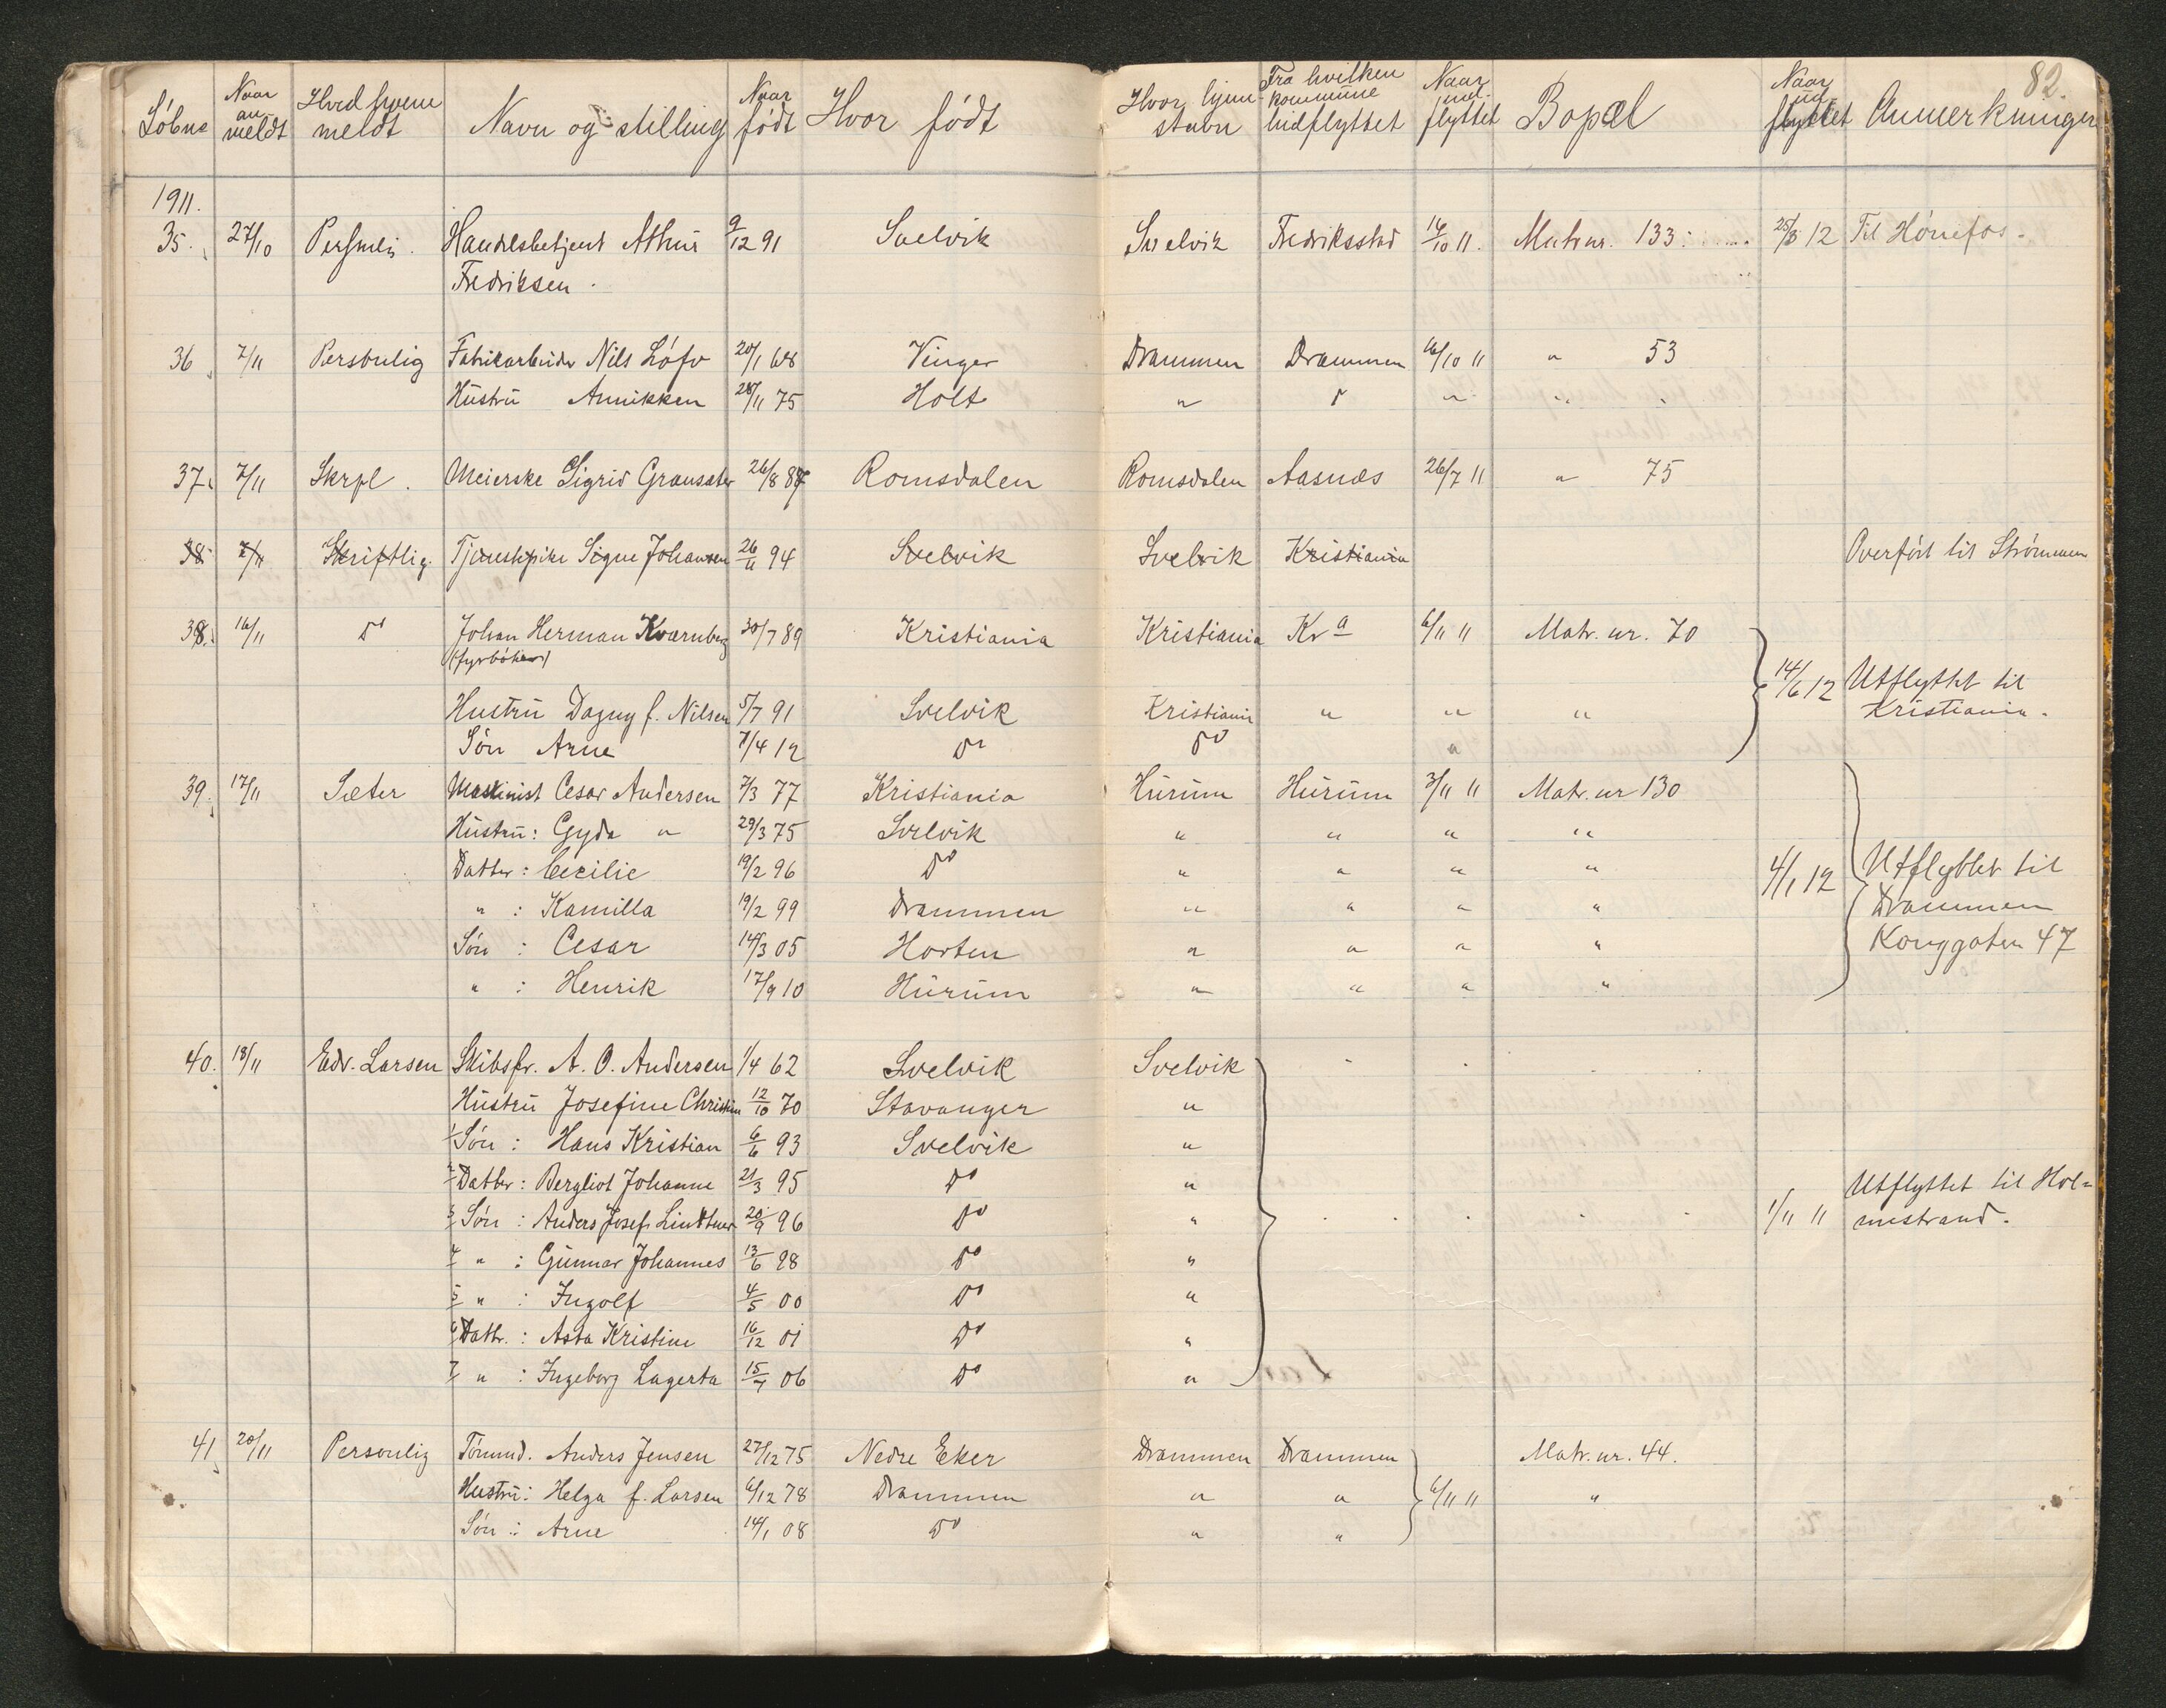 82.
Løbne Naar anmeldt Hved hvem meldt Navn og stilling Naar født Hvor født Hvor hjemstavn Fra hvilken kommune hidflyttet Naar indflyttet Bopæl Naar udflyttet Anmerkninger
1911.
35. 27/10 Handelsbetjent Athur 9/12 91 Svelvik Svelvik Fredriksstad 16/10 11. Matr nr. 133 25/3 12 Til Hønefos.
Fredriksen.
36 7/11 Personlig Fabrikarbeider Nils Løfv 20/1 68 Vinger Drammen Drammen 16/10 11 " 53
Hustru Annikken 28/11 75 Holt " " "
37. 7/11 Skrpl. Meierske Sigrid Gransæter 26/8 87 Romsdalen Romsdalen Aasnæs 26/7 11 " 75
38. 7/11 Skriftlig. Tjenestepike Signe Johansen 26/11 94 Svelvik Svelvik Kristiania Overført til Strømmen
38. 16/11 Do Johan Herman Kværnberg 30/7 89 Kristiania Kristiania Kra 6/11 11 Matr. nr. 70
(fyrbøter)
Hustru Dagny f. Nilsen 5/7 91 Svelvik Kristiania " " " 14/6 12 Utflyttet til
Kristiania.
Søn Arne 7/4 12 Do Do "
39. 17/11 Sæter Maskinist Cesar Andersen 7/3 77 Kristiania Hurum Hurum 3/11 11 Matr. nr 130
Hustru: Gyda " 29/3 75 Svelvik " " " "
Datter: Cecilie 19/2 96 Do " " " " 4/1 12 Utflyttet til
" : Kamilla 19/2 99 Drammen " " " " Drammen
Søn : Cesar 14/3 05 Horten " " " " Konggaten 47
" : Henrik 17/9 10 Hurum " " " "
40. 18/11 Edv. Larsen Skibsfr. A. O. Andersen 1/4 62 Svelvik Svelvik
Hustru Josefine Christine 12/10 70 Stavanger "
1 Søn : Hans Kristian 6/6 93 Svelvik "
2 Datter : Bergliot Johanne 21/3 95 Do " Utflyttet til Hol=
3 Søn : Anders Josef Lindtner 20/9 96 Do " 1/11 11 mestrand.
4 " : Gunnar Johannes 13/6 98 Do "
5 " : Ingolf 4/5 00 Do "
6 Dattr. : Asta Kristine 16/12 01 Do "
7 " : Ingeborg Lagerta 15/7 06 Do "
41. 20/11 Personlig Tømmd. Anders Jensen 27/12 75 Nedre Eker Drammen Drammen Matr. nr. 44.
Hustru: Helga f. Larsen 6/12 78 Drammen " " 6/11 11 "
Søn : Arne 14/1 08 Do " "